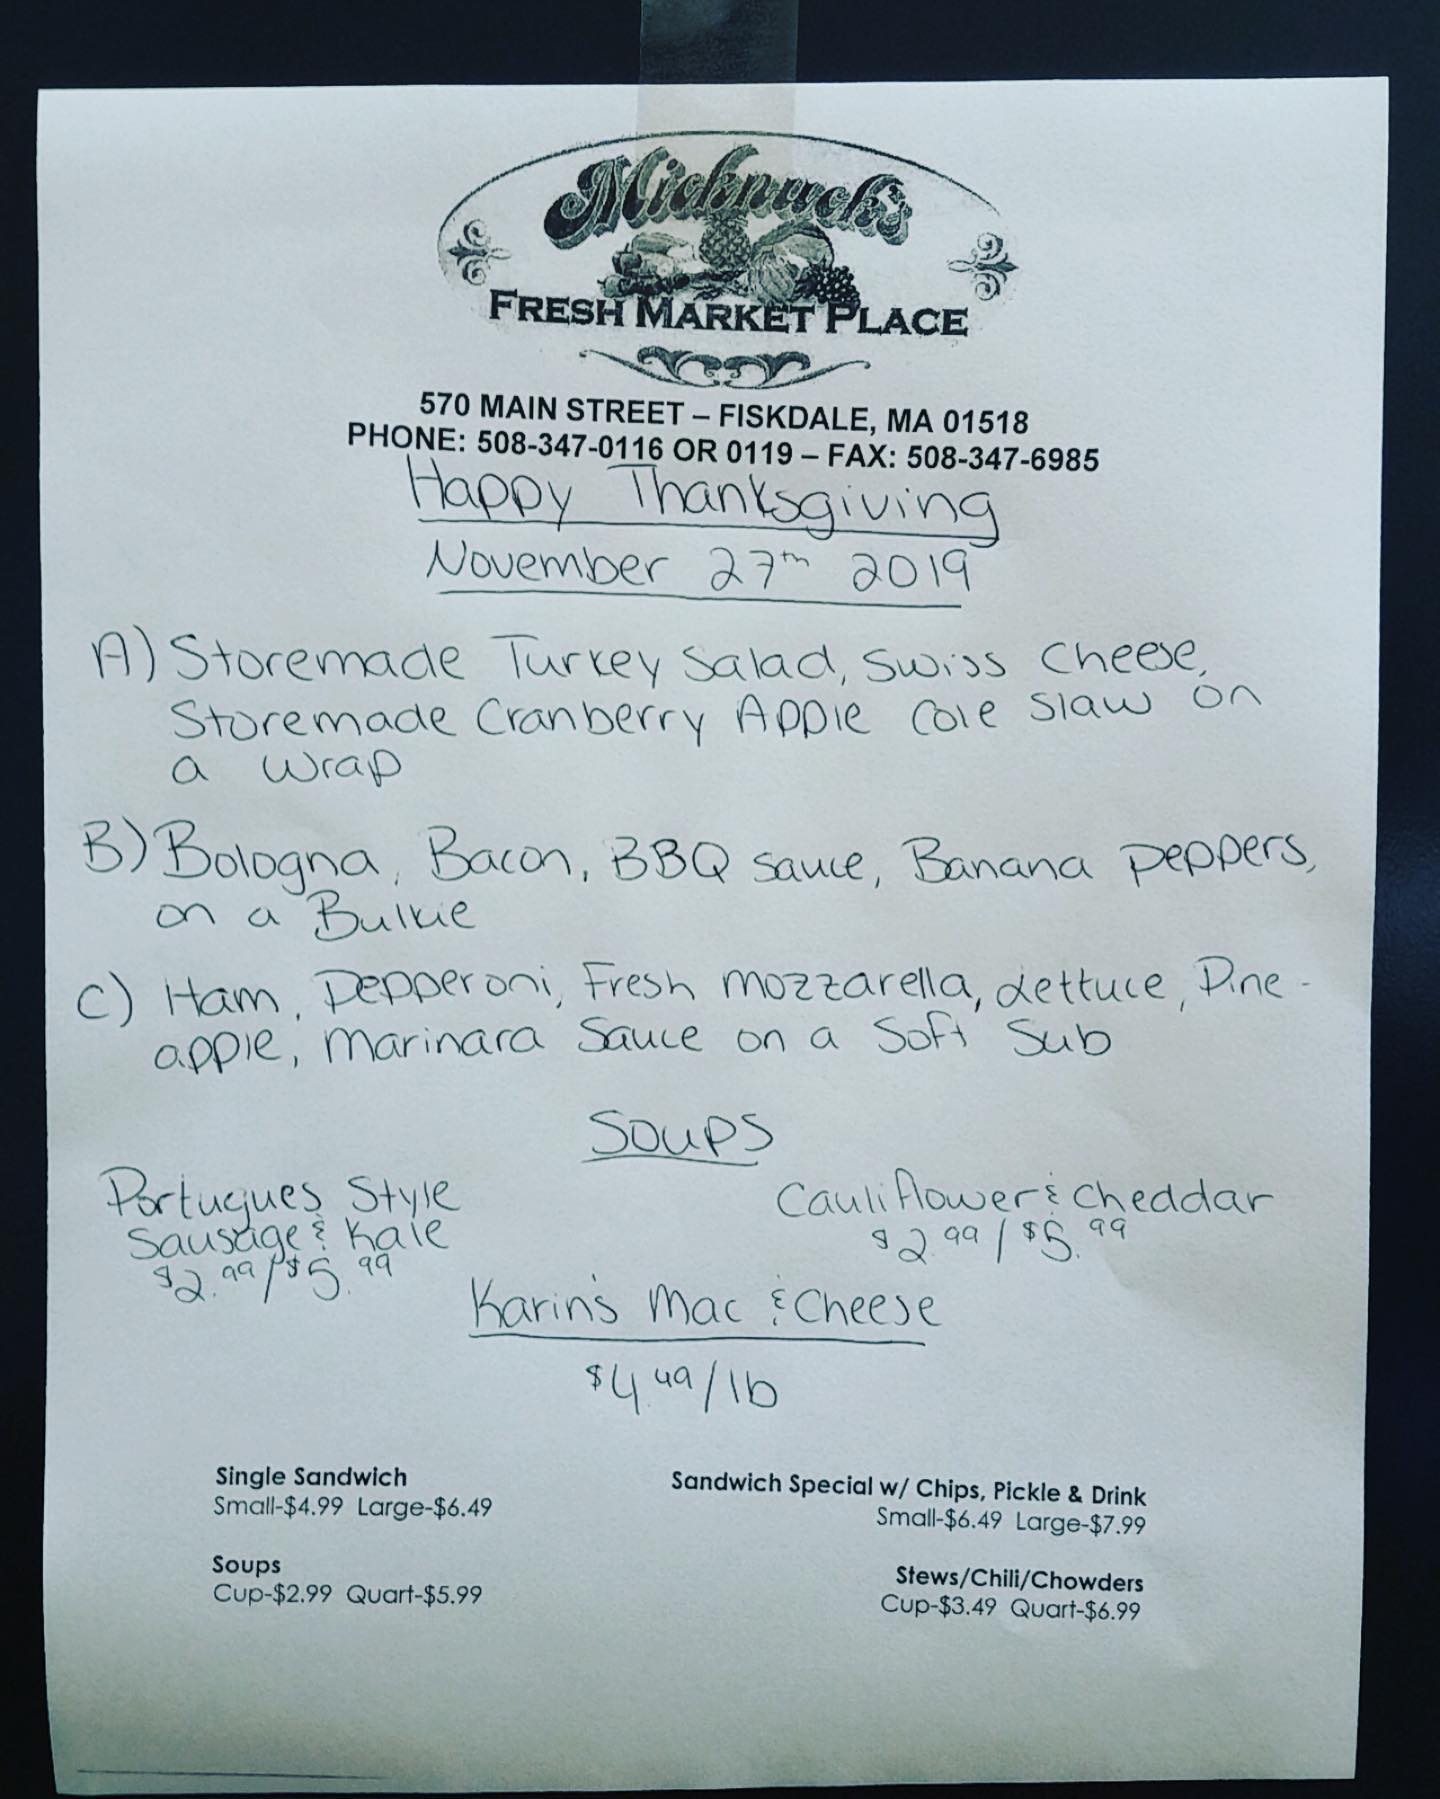 Micknuck's
FRESH MARKET PLACE
570 MAIN STREET – FISKDALE, MA 01518
PHONE: 508-347-0116 OR 0119 – FAX: 508-347-6985
Happy Thanksgiving
November 27th 2019
A) Storemade Turkey Salad, Swiss Cheese,
Storemade Cranberry Apple Cole Slaw on
a Wrap
B) Bologna, Bacon, BBQ sauce, Banana peppers,
on a Bulkie
C) Ham, Pepperoni, Fresh mozzarella, Lettuce, Pine-
apple, Marinara Sauce on a Soft Sub
Soups
Portugues Style
Sausage & Kale
$2.99/$5.99
Cauliflower & Cheddar
$2.99/$5.99
Karin's Mac & Cheese
$4.49/lb
Single Sandwich
Small-$4.99 Large-$6.49
Sandwich Special w/ Chips, Pickle & Drink
Small-$6.49 Large-$7.99
Soups
Cup-$2.99 Quart-$5.99
Stews/Chili/Chowders
Cup-$3.49 Quart-$6.99